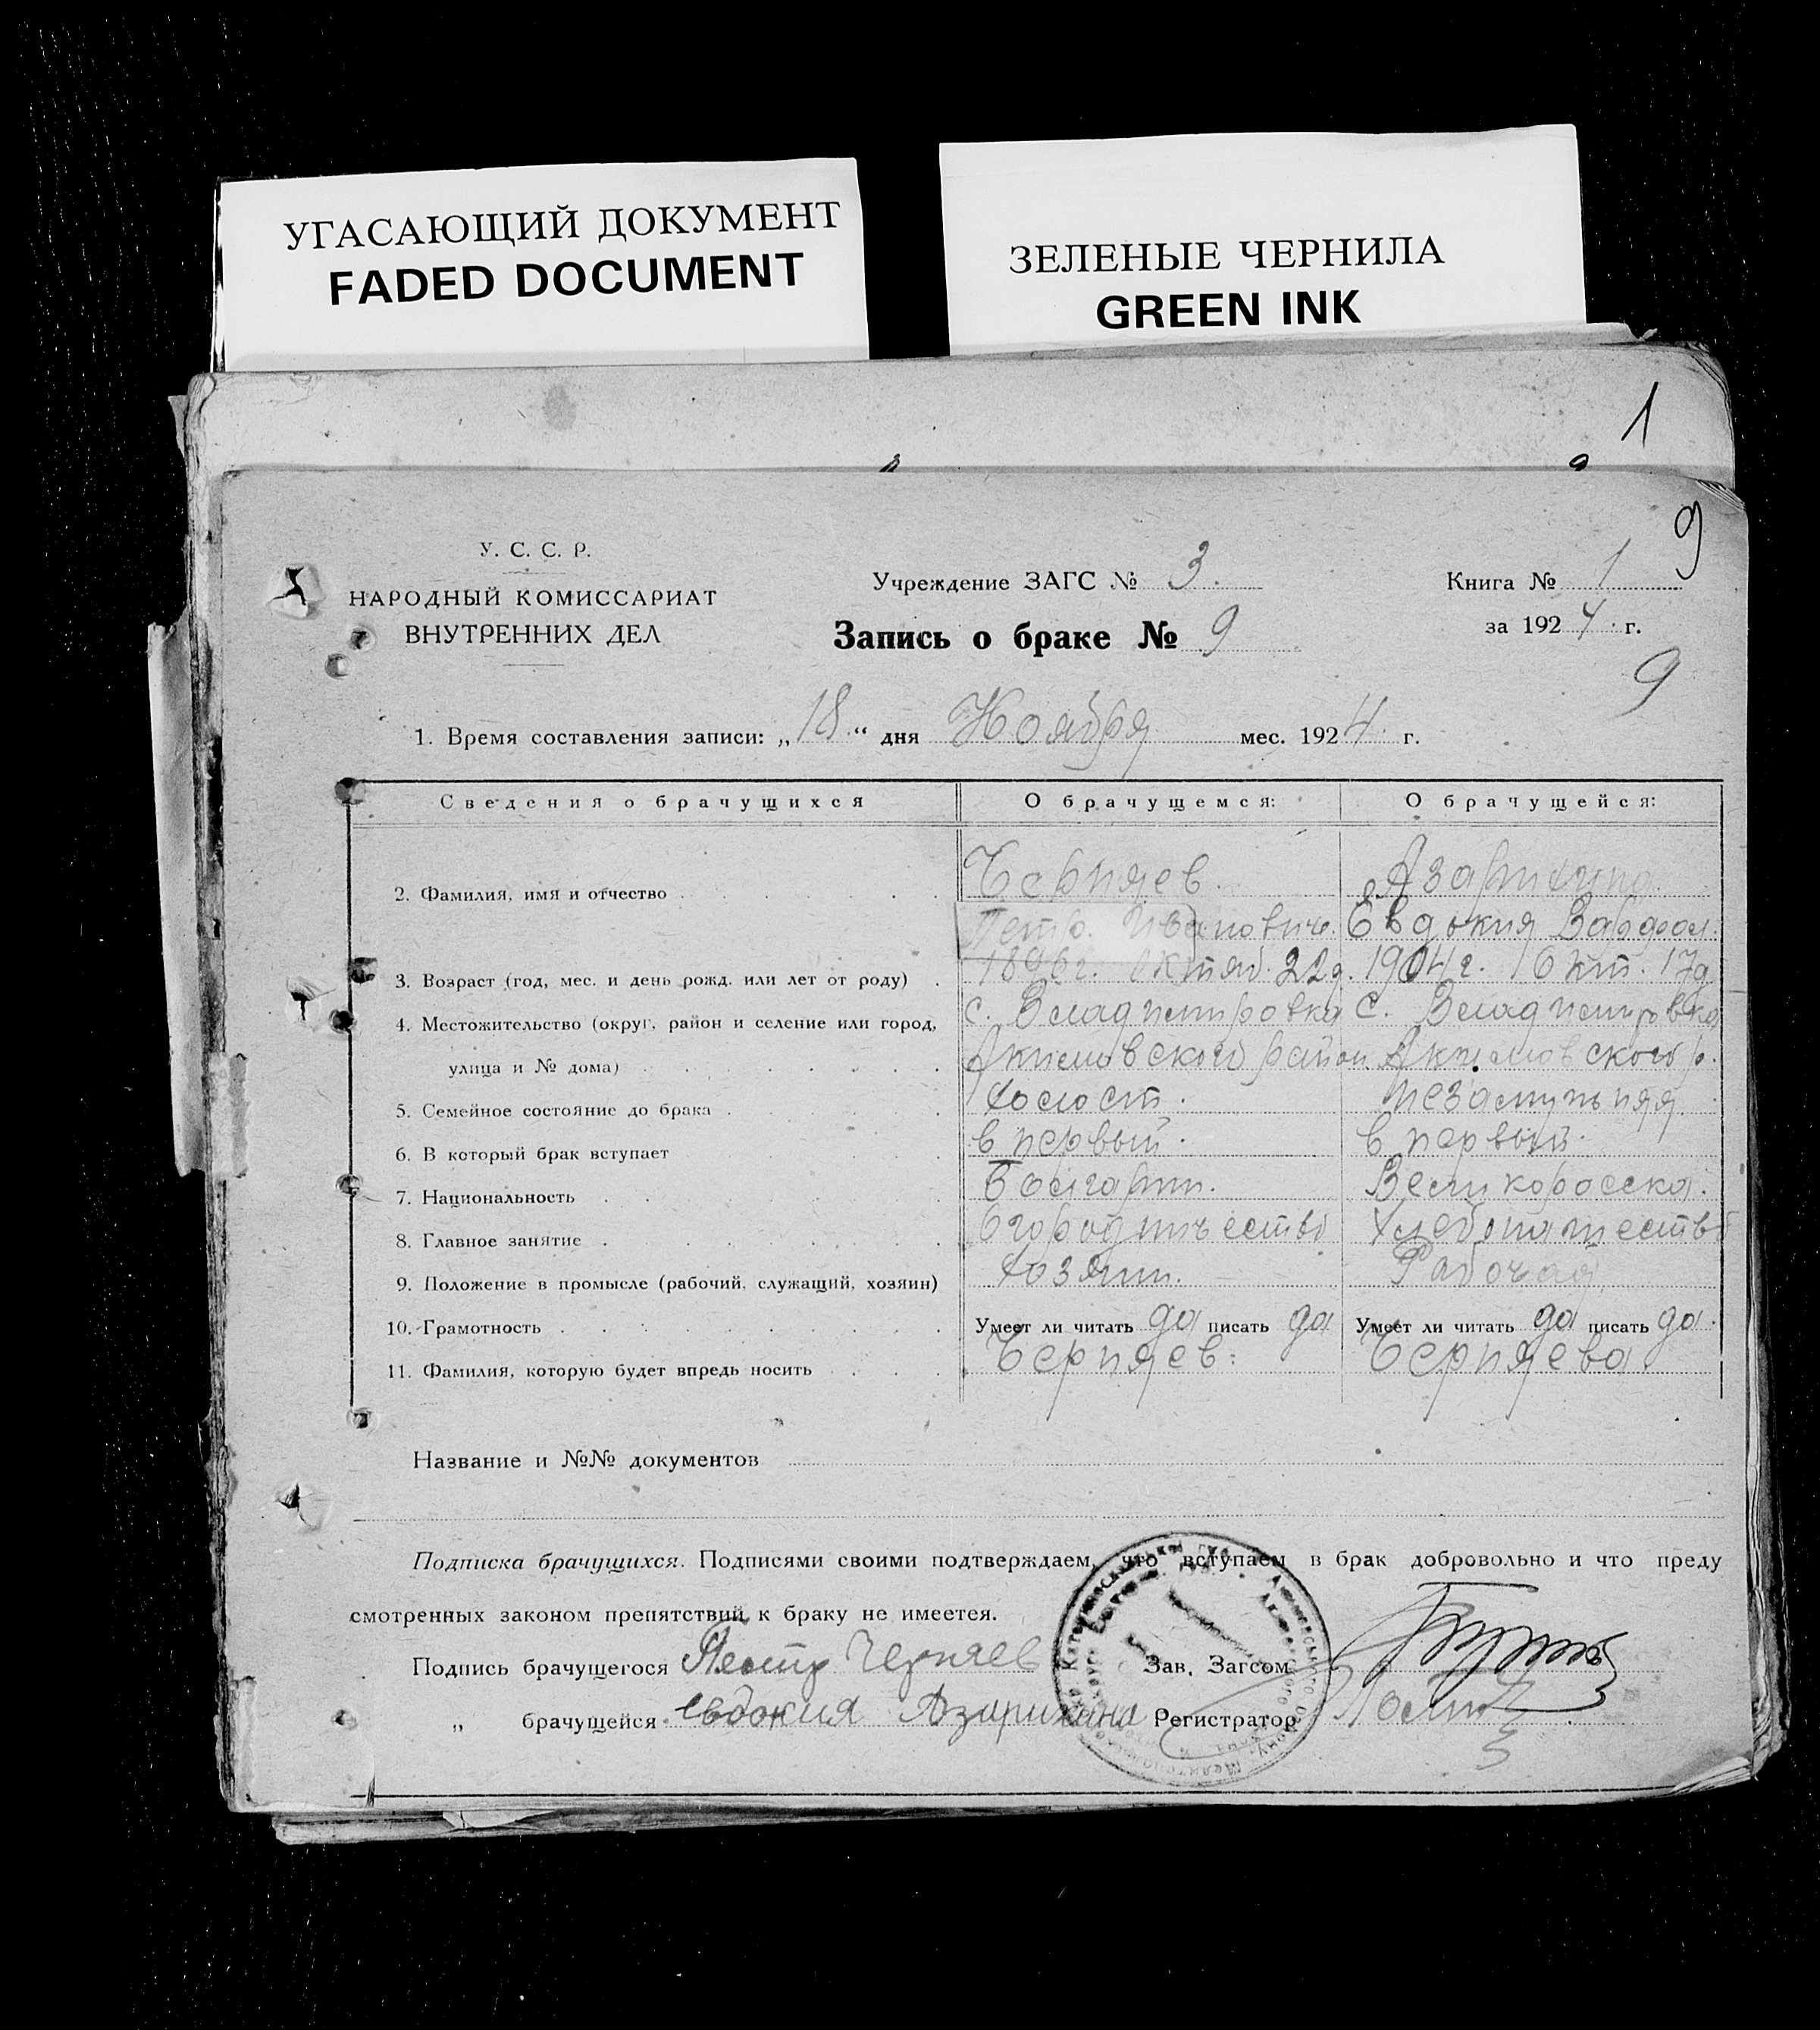 УГАСАЮЩИЙ ДОКУМЕНТ
FADED DOCUMENT
ЗЕЛЕНЫЕ ЧЕРНИЛА
GREEN INK
1
9
У. С. С. Р.
НАРОДНЫЙ КОМИССАРИАТ
ВНУТРЕННИХ ДЕЛ
Учреждение ЗАГС № 3.
Запись о браке № 9
Книга № 1
за 1924 г.
9
1. Время составления записи: „18“ дня Ноября мес. 1924 г.
Сведения о брачущихся О брачущемся: О брачущейся:
2. Фамилия, имя и отчество Черняев. Азарихина.
Петр. Иванович. Евдокия Варфол.
3. Возраст (год, мес. и день рожд. или лет от роду) 1896г. Октяб. 22д. 1904г. 16 окт. 17д
4. Местожительство (округ, район и селение или город, с. Владимировка с. Владимировка
улица и № дома) Акимовского район Акимовского р.
5. Семейное состояние до брака холост. незамужняя
6. В который брак вступает в первый. в первый.
7. Национальность Болгарин. Великоросска.
8. Главное занятие Огородничество Хлебопашество
9. Положение в промысле (рабочий, служащий, хозяин) хозяин. Рабочая
10. Грамотность Умеет ли читать да писать да Умеет ли читать да писать да.
11. Фамилия, которую будет впредь носить Черняев: Черняева
Название и №№ документов
Подписка брачущихся. Подписями своими подтверждаем, что вступаем в брак добровольно и что преду
смотренных законом препятствий к браку не имеется.
Подпись брачущегося Петр Черняев Зав. Загсом
„ брачущейся Евдокия Азарихина Регистратор